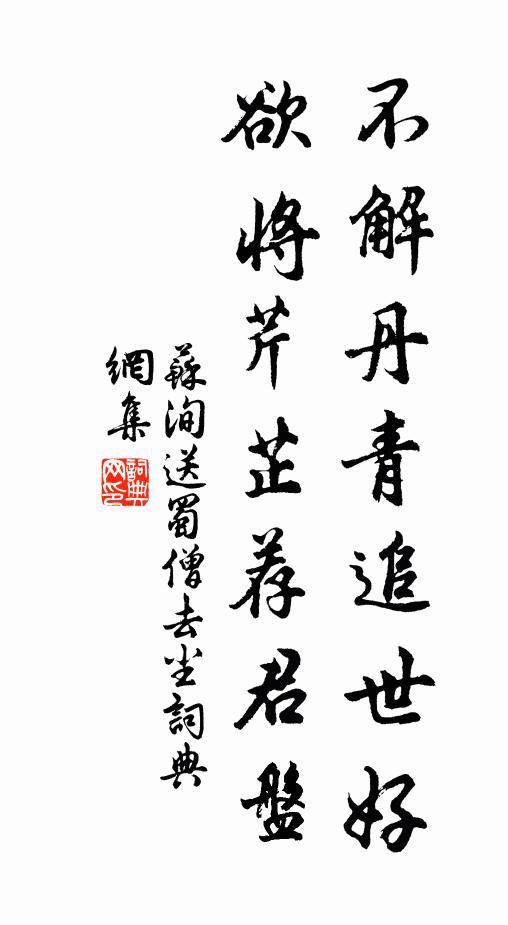 不解丹青追世好
欲將芹芷荐君盤
蘇洵送蜀僧去尘詞典
網集
詞典
网印